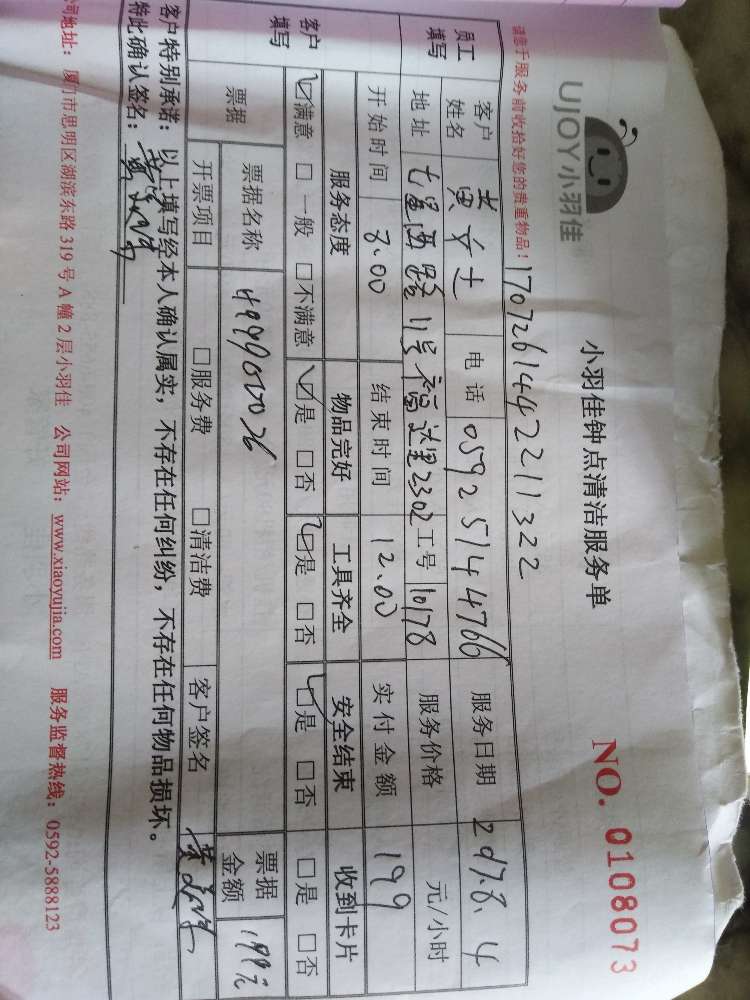 UJOY小羽佳
小羽佳钟点清洁服务单
NO. 0108073
请惠于服务前收拾好您的贵重物品！
1707261442211322
员工填写
客户姓名 黄女士 电话 0592 5144766 服务日期 2017.8.4
地址 七星西路11号 2302 工号 10178 服务价格 元/小时
开始时间 8.00 结束时间 12.00 实付金额 199
客户填写
服务态度 物品完好 工具齐全 安全结束 收到卡片
☑满意 □一般 □不满意 ☑是 □否 ☑是 □否 ☑是 □否 □是 □否
票据 票据名称 票据金额 199元
开票项目 □服务费 □清洁费 客户签名
客户特别承诺：以上填写经本人确认属实，不存在任何纠纷，不存在任何物品损坏。
特此确认签名：
公司地址：厦门市思明区湖滨东路 319 号 A 幢 2 层小羽佳 公司网站：www.xiaoyujia.com 服务监督热线：0592-5888123